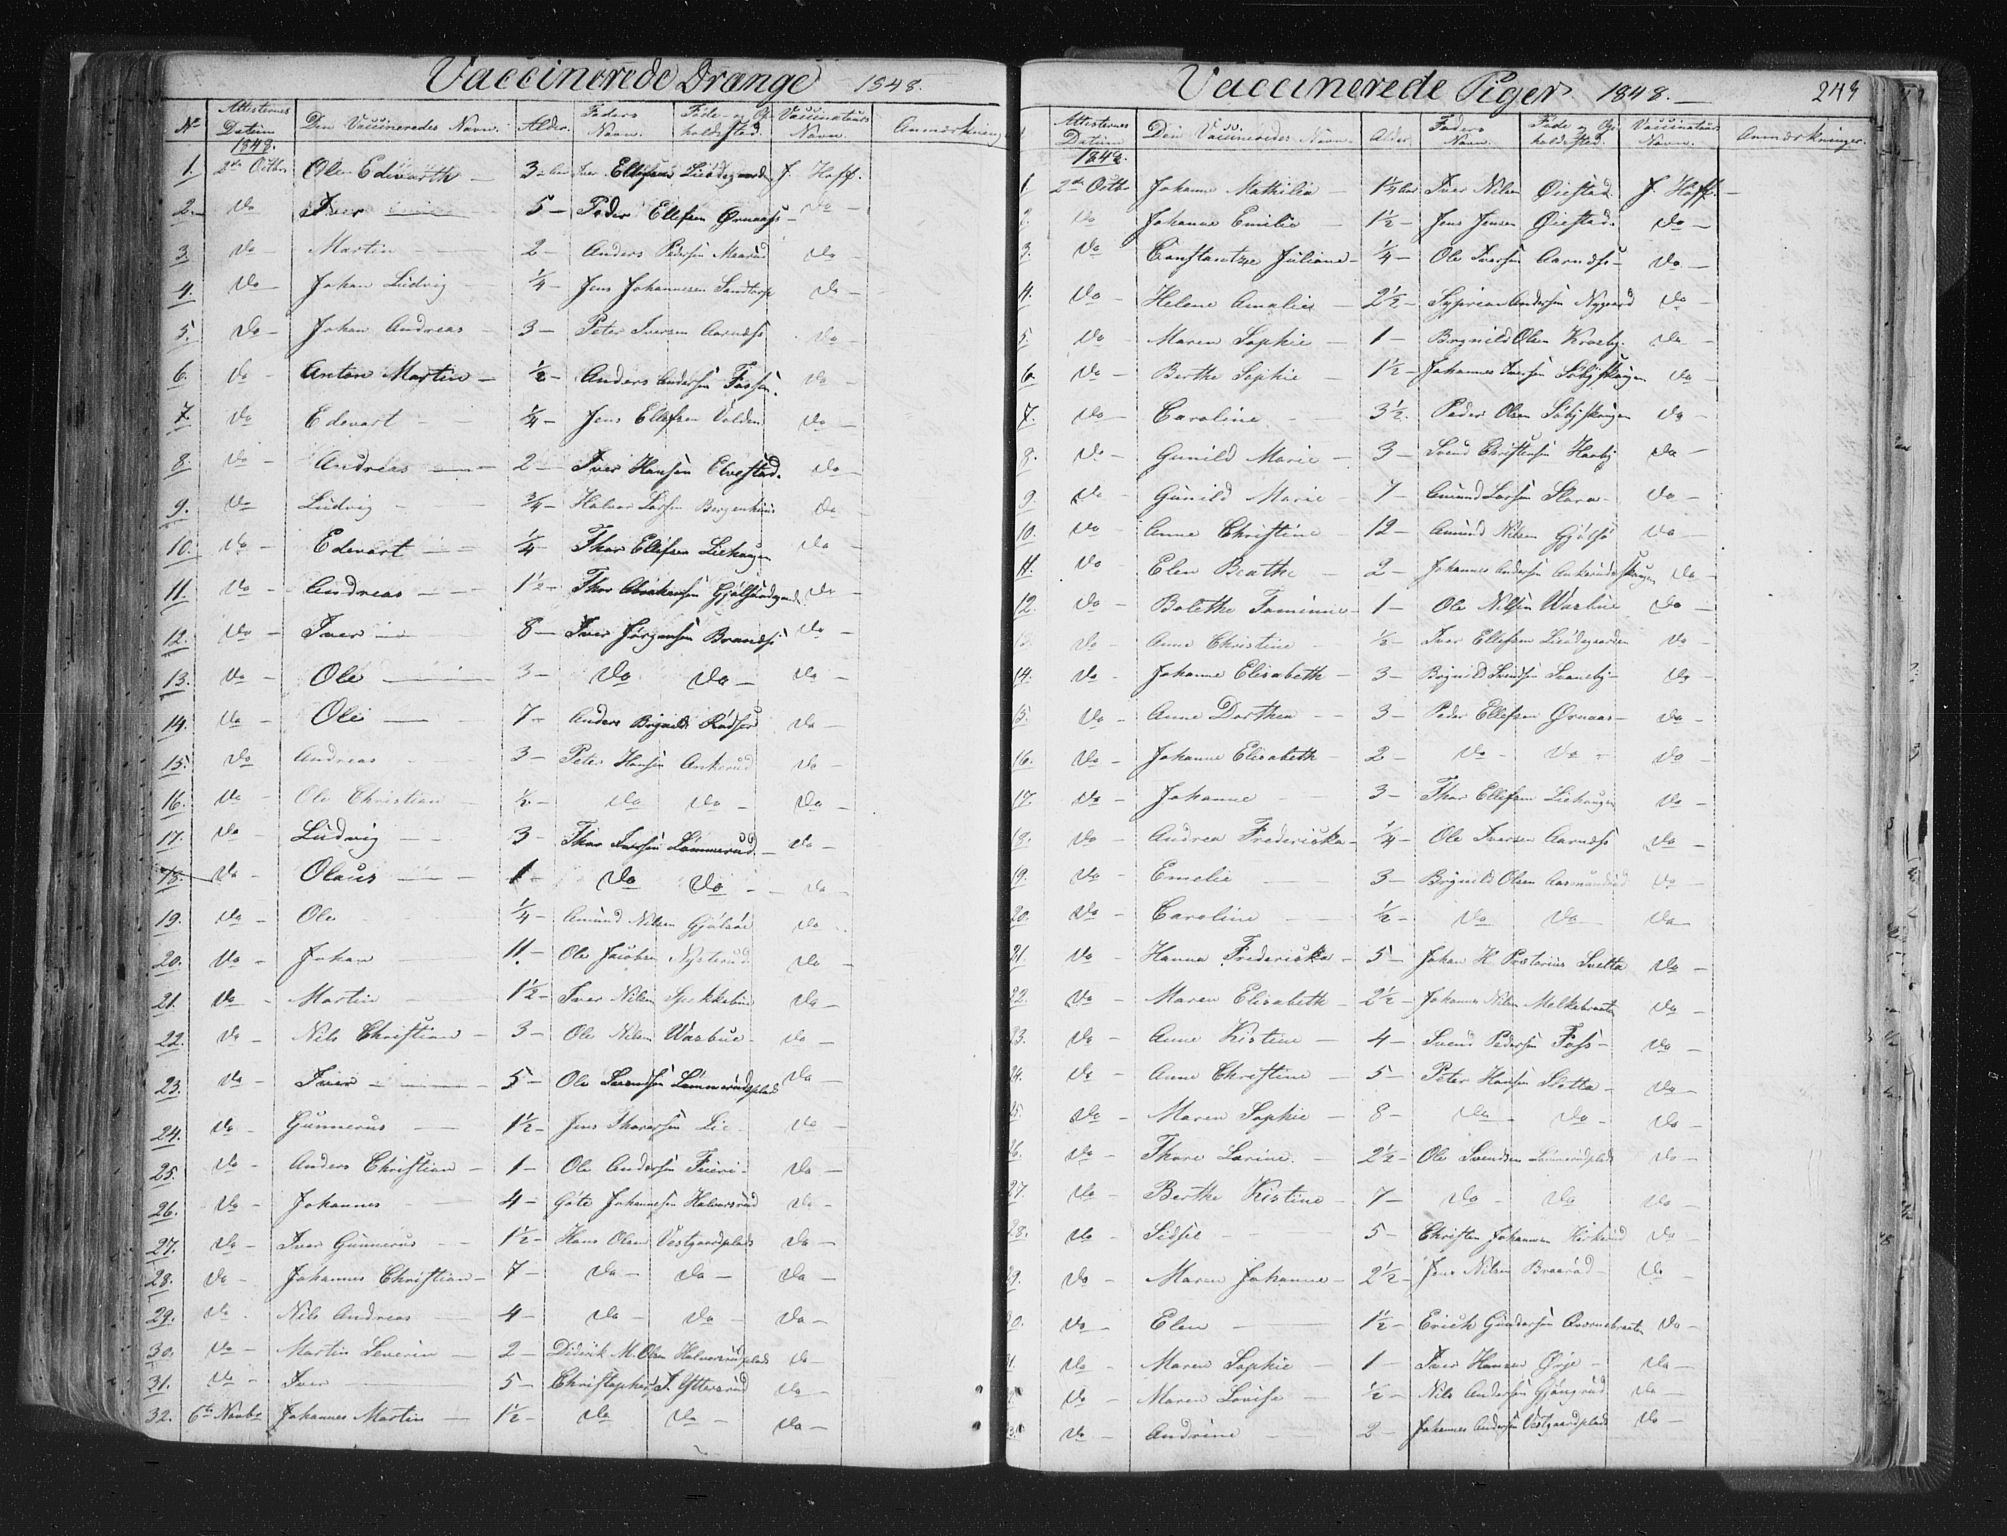 Vaccinerede Drænge 1848.
No Attesternes Datum Den Vaccineredes Navn. Alder. Faders Navn. Føde- og Opholdsted. Vaccinateurs Navn. Anmærkninger
1848.
1. 2de Octbr Ole Edvarth 3 Iver Ellefsen J. Hoff.
2. Do Iver 5 Peder Ellefsen Ørnaas Do
3. Do Martin 2 Anders Pedersen Do
4. Do Johan Ludvig 1/4 Jens Johannesen Sandtorp Do
5. Do Johan Andreas 3 Peter Iversen Aarnæss Do
6. Do Anton Martin 1/2 Anders Andersen Fossen. Do
7. Do Edevart 1/4 Jens Ellefsen Volden Do
8. Do Andreas 2 Iver Hansen Elvestad. Do
9. Do Ludvig 3/4 Halvor Larsen Do
10. Do Edevart 1/4 Thor Ellefsen Liehaugen Do
11. Do Andreas 1 1/2 Thor Do
12. Do Iver 8 Iver Jørgensen Brandss Do
13. Do Ole 3 Do Do Do
14. Do Ole 7 Anders Do
15. Do Andreas 3 Peter Hansen Ankerud Do
16. Do Ole Christian 1/2 Do Do Do
17. Do Ludvig 3 Thor Iversen Lammerud Do
18. Do Olaus 1 Do Do Do
19. Do Ole 1/4 Amund Nilsen Gjølsøe Do
20. Do Johan 11 Ole Jacobsen Nysterud Do
21. Do Martin 1 1/2 Iver Nilsen Do
22. Do Nils Christian 3 Ole Nilsen Warbue Do
23. Do Iver 5 Ole Svendsen Lammerudsplads Do
24. Do Gunnerus 1 1/2 Jens Thorersen Lie Do
25. Do Anders Christian 1 Ole Andersen Do
26. Do Johannes 4 Johannesen Halvorsrud Do
27. Do Iver Gunnerus 1 1/2 Hans Olsen Vestgaardplads Do
28. Do Johannes Christian 7 Do Do Do
29. Do Nils Andreas 4 Do Do Do
30. Do Martin Severin 2 Diderik M. Olsen Halvorsrudsplads Do
31. Do Iver 5 Christopher J. Yttersrud Do
32. 6te Novbr Johannes Martin 1 1/2 Do Do Do
Vaccinerede Piger 1848. 249
Attesternes Datum Den Vaccineredes Navn. Alder. Faders Navn. Føde og Opholdsted. Vaccinateurs Navn. Anmærkninger.
1848.
1. 2de Octbr Johanne Mathilia 1 1/4 Iver Nilsen Øiestad. J. Hoff.
2. Do Johanne Emilie 1 1/2 Jens Jensen Øiestad. Do
3. Do Constantze Juliane 1/4 Ole Iversen Aarnæss Do
4. Do Helene Amalie 2 1/2 Syprian Andersen Nygaard Do
5. Do Maren Sophie 1 Brynild Olsen Kroeby. Do
6. Do Berthe Sophie 1 1/2 Johannes Søbyskougen Do
7. Do Caroline 3 1/2 Peder Olsen Søbyskougen Do
8. Do Gunild Marie 3 Svend Christensen Haneby Do
9. Do Gunild Marie 7 Amund Larsen Slora Do
10. Do Anne Christine 12 Amund Nilsen Gjølsø Do
11. Do Elen Beathe 2 Johannes Andersen Ankerudskougen Do
12. Do Bolethe 1 Ole Nilsen Warbue Do
13. Do Anne Christine 1/2 Iver Ellefsen Do
14. Do Johanne Elisabeth 3 Brynild Svendsen Svaneby Do
15. Do Anne Dorthea 3 Peder Ellefsen Ørnaas Do
16. Do Johanne Elisabeth 2 Do Do Do
17. Do Johanne 3 Thor Ellefsen Liehaugen Do
18. Do Andrea Fredericka 1/4 Ole Iversen Aarnæss Do
19. Do Emelie 3 Brynild Olsen Aasmundrud Do
20. Do Caroline 1/2 Do Do Do
21. Do Hanna Fredericka 5 Johan H. Prætorius Sletta Do
22. Do Maren Elisabeth 2 1/2 Johannes Nilsen Melkebraaten Do
23. Do Anne Kistine 4 Svend Pedersen Foss Do
24. Do Anne Christine 5 Peter Hansen Sletta Do
25. Do Maren Sophie 8 Do Do Do
26. Do Thore Larine. 2 1/2 Ole Svendsen Lammerudsplads Do
27. Do Berthe Kistine 7 Do Do Do
28. Do Sidsel 5 Christen Johannesen Kirkerud Do
29. Do Maren Johanne 2 1/2 Jens Nilsen Braarud Do
30. Do Elen 1 1/2 Erich Gundersen Qvernebraaten Do
31. Do Maren Sophie 1 Iver Hansen Ørje Do
Do Maren Lovise 1/2 Nils Andersen Do
33. Do Andrine 2 Johannes Andersen Vestgaardplads Do